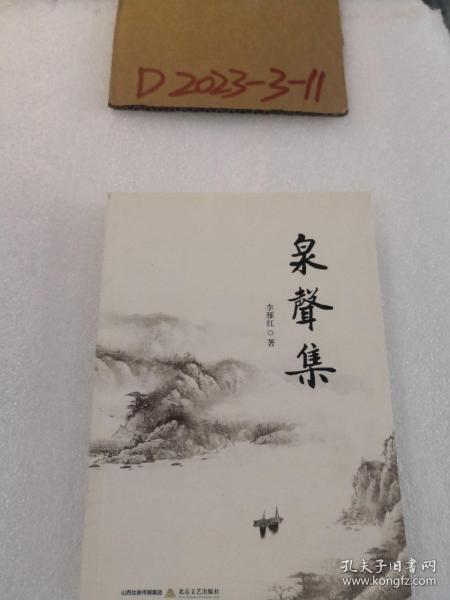 D2023-3-11
泉聲集
李雁红◎著
山西出版传媒集团 北岳文艺出版社
孔夫子旧书网
www.kongfz.com